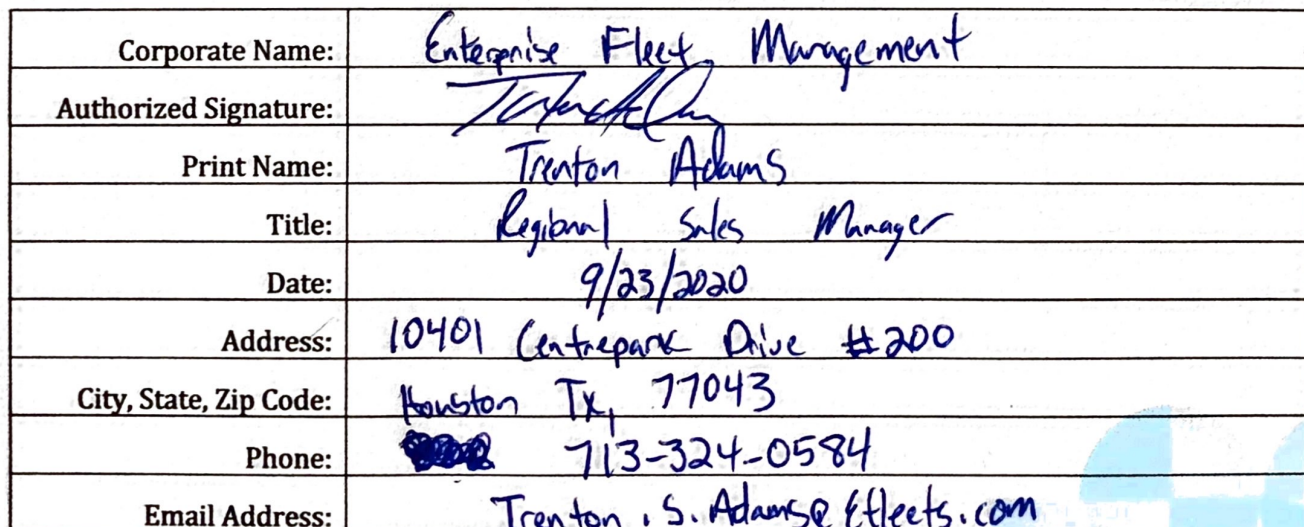 Corporate Name: Enterprise Fleet Management
Authorized Signature:
Print Name: Trenton Adams
Title: Regional Sales Manager
Date: 9/23/2020
Address: 10401 Centrepark Drive #200
City, State, Zip Code: Houston Tx, 77043
Phone: 713-324-0584
Email Address: Trenton.S.Adams@efleets.com